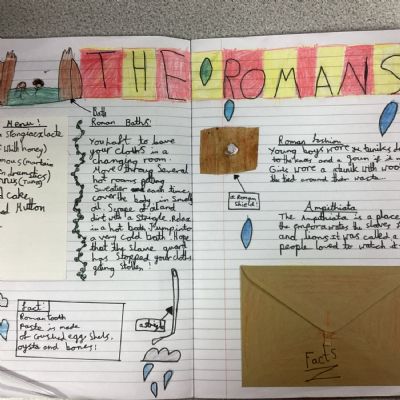 THE ROMANS
Bath
Menu!
with honey)
cake
Mutton
Roman Baths:
You haft to leave
your cloths in a
changing room.
Move through several
hot rooms getting
Sweater and each time,
cover the body in smelly
oil Scrape of oil and
dirt with a strigle. Relax
in a hot bath. Jump into
a very cold bath. Hope
that the slave guard
has stopped your cloths
going stollen.
Fact:
Roman tooth
Paste is made
of crushed egg shels,
oysta and bones!
a strigle
Roman fashion
Young boys wore tunikes down
to the knees and a gown if it
Girls wore a tunik with
the belt around their waste.
a Roman
Shield
Ampithiata
The Ampithiata is a place
the emporor watches the slaves
and lions it was called a
people loved to watch it
Facts